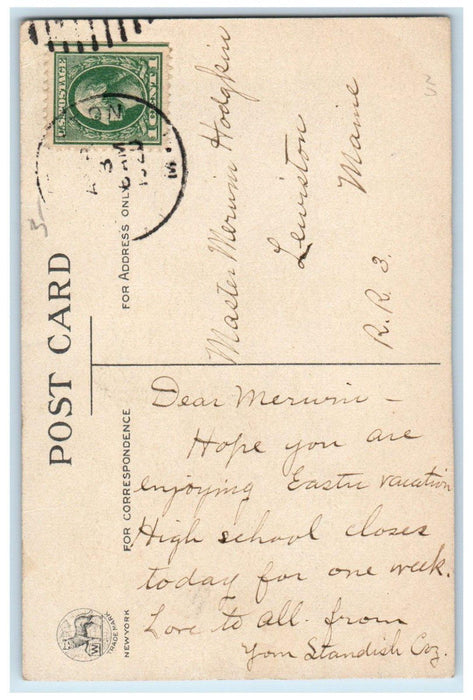 U.S. POSTAGE
1 CENT 1
3
AM
POST CARD
FOR ADDRESS ONLY
Master Merwin Hodgkin
Lewiston
Maine
R. R. 3.
FOR CORRESPONDENCE
Dear Merwin —
Hope you are
enjoying Easter vacation
High school closes
today for one week.
Love to all. from
Standish Coz.
TRADE MARK
W
NEW YORK